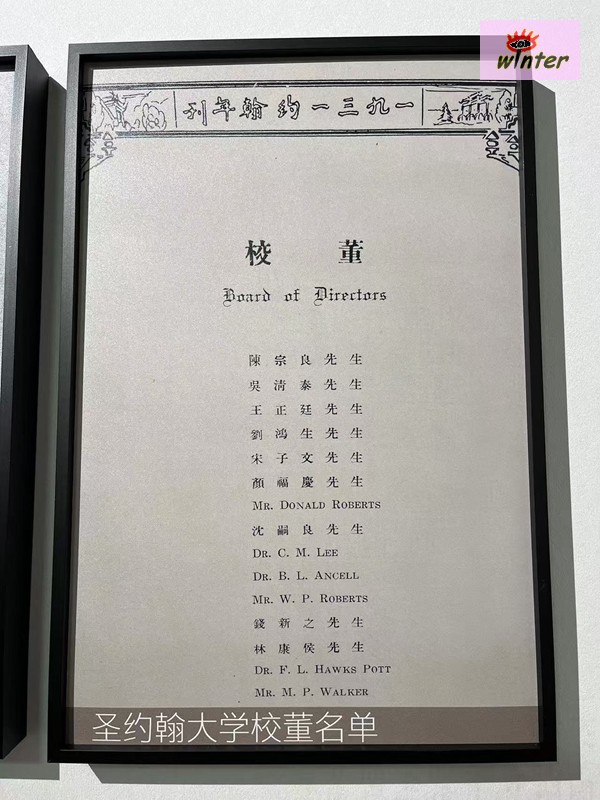 winter
刊年翰約一三九一
校董
Board of Directors
陳宗良先生
吳清泰先生
王正廷先生
劉鴻生先生
宋子文先生
顏福慶先生
MR. DONALD ROBERTS
沈嗣良先生
DR. C. M. LEE
DR. B. L. ANCELL
MR. W. P. ROBERTS
錢新之先生
林康侯先生
DR. F. L. HAWKS POTT
MR. M. P. WALKER
圣约翰大学校董名单